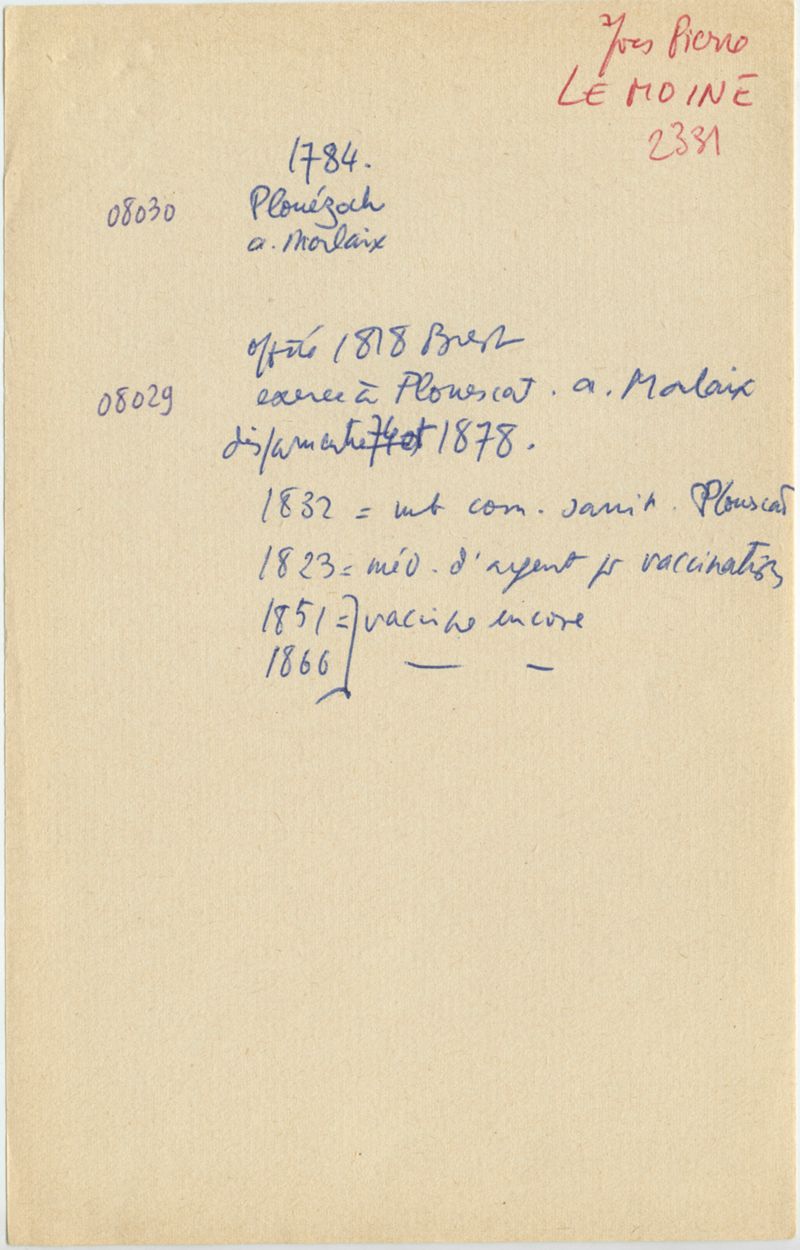 Yves Pierre
LE MOINE
2331
1784.
08030 Plouézoch
a. Morlaix
1818 Brest
08029 exerce à Plouescat. a. Morlaix
1878.
1832 = mb com. sanit. Plouescat
1823 = méd. d'argent pr vaccinations
1851 = vaccine encore
1866 — —